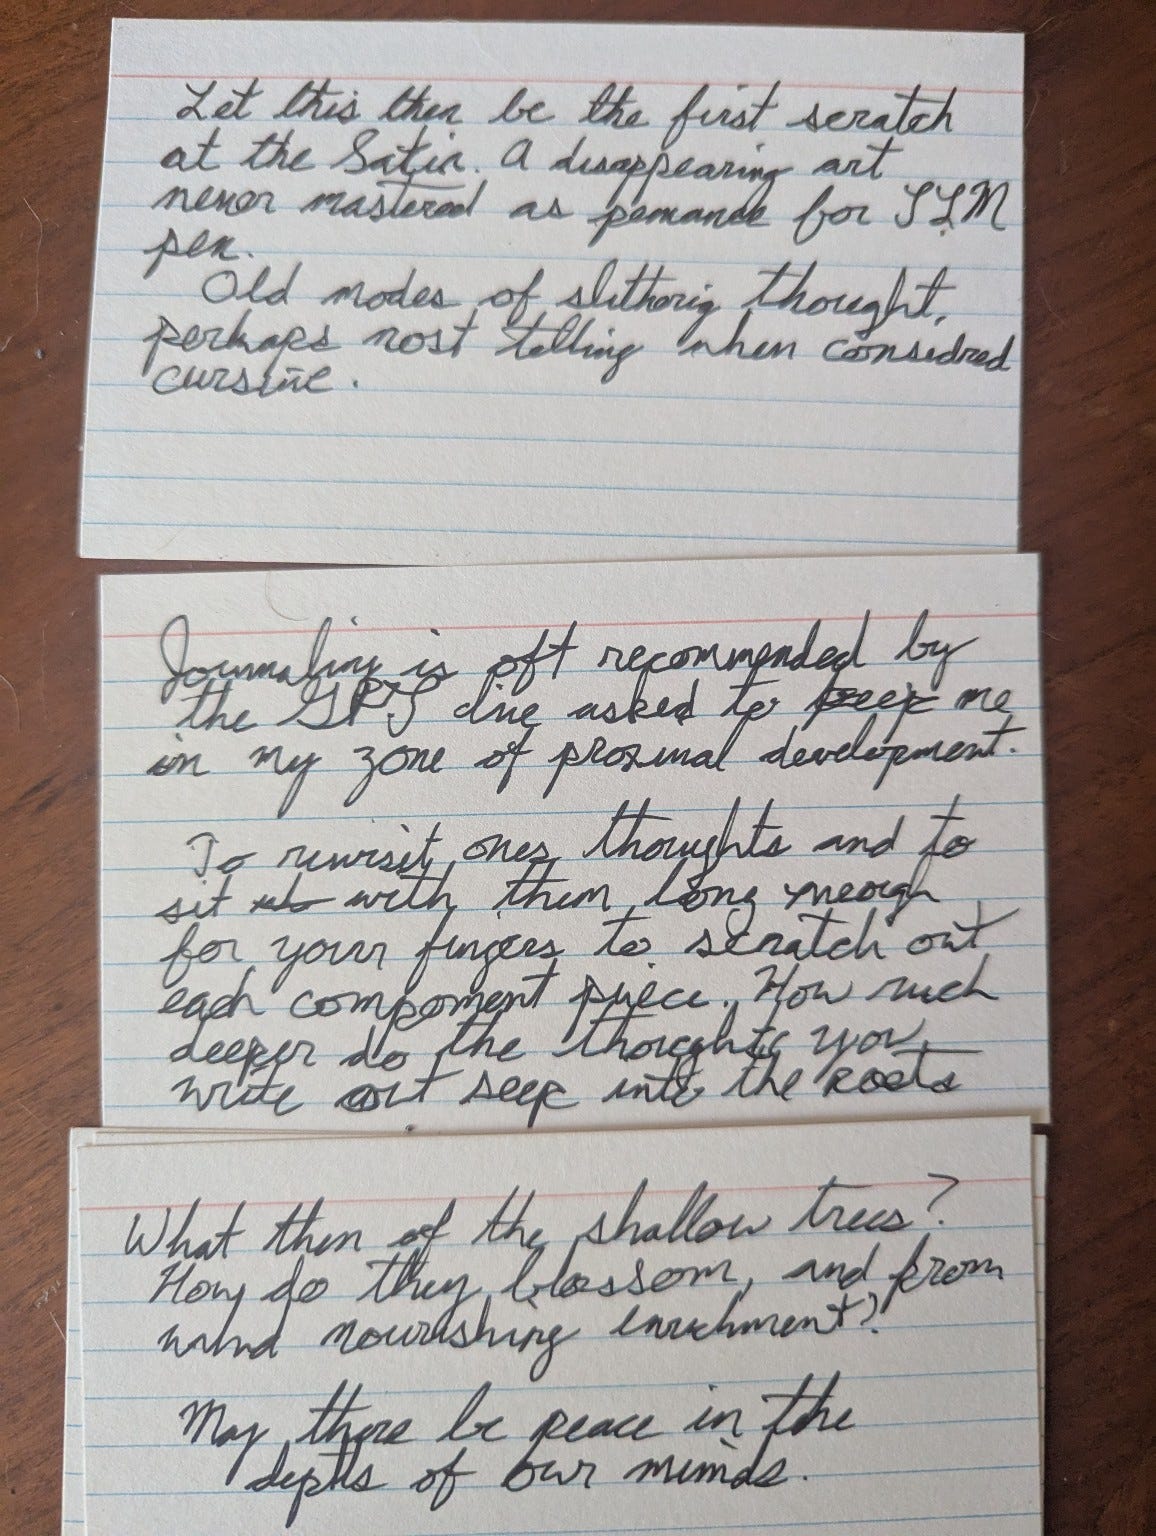 Let this then be the first scratch
at the Satin. A disappearing art
never mastered as pemance for
pen.
Old modes of slitherig thought,
perhaps most telling when considred
cursive.
Journaling is oft recommended by
the GPT I've asked to keep me
in my zone of proximal development.
To revisit ones thoughts and to
sit with them long enough
for your fingers to scratch out
each component piece. How much
deeper do the thoughts you
write out seep into the roots
What then of the shallow trees?
How do they blossom, and from
wind nourishing enrichment?
May there be peace in the
depths of our minds.